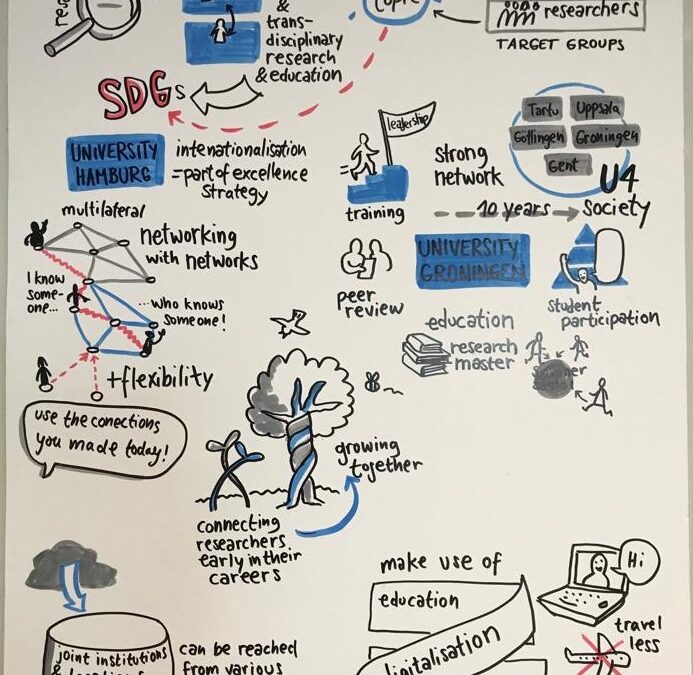 &
trans-
disciplinary
research
& education
topic
researchers
TARGET GROUPS
SDGs
UNIVERSITY
HAMBURG
intenationalisation
=part of excellence
strategy
leadership
training
strong
network
Tartu
Uppsala
Göttingen
Groningen
Gent
U4
10 years
society
multilateral
networking
with networks
I know
some-
one...
...who knows
someone!
+flexibility
use the conections
you made today!
peer
review
UNIVERSITY
GRONINGEN
student
participation
education
research
master
growing
together
connecting
researchers
early in their
careers
joint institutions
can be reached
from various
make use of
education
digitalisation
Hi
travel
less